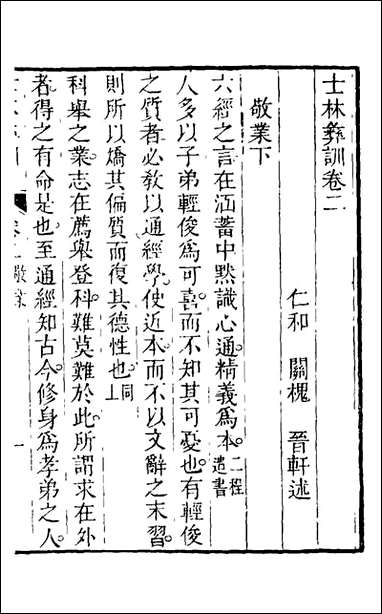 士林彝訓卷二
仁和 關槐 晉軒述
敬業下
六經之言在涵蓄中默識心通精義爲本二程遺書
人多以子弟輕俊爲可喜而不知其可憂也有輕俊
之質者必敎以通經學使近本而不以文辭之末習
則所以矯其偏質而復其德性也同上
科舉之業志在薦舉登科難莫難於此所謂求在外
者得之有命是也至通經知古今修身爲孝弟之人
敬業
一